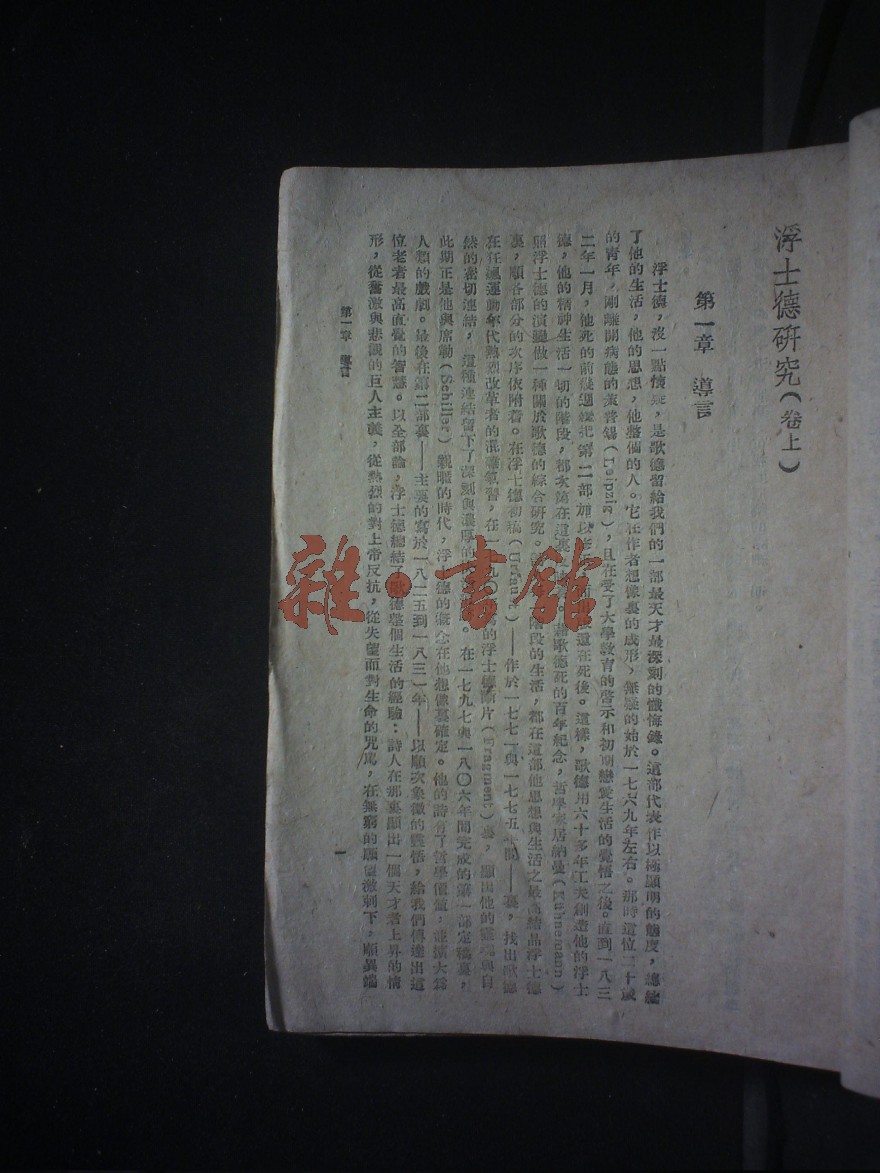 浮士德研究（卷上）
第一章　導言
浮士德，沒一點懷疑，是歌德留給我們的一部最天才最深刻的懺悔錄。這部代表作以極顯明的態度，總結
了他的生活，他的思想，他整個的人。它在作者想像裏的成形，無疑的始於一七六九年左右。那時這位二十歲
的靑年，剛離開病態的萊普錫（Leipzig），且在受了大學教育的啓示和初期戀愛生活的覺悟之後。直到一八三
二年一月，他死的前幾週纔把第二部加以，還在死後。這樣，歌德用六十多年工夫創造他的浮士
德，他的精神生活一切的階段，都次第在這裏歌德死的百年紀念，哲學家居納曼（Kühnemann）
照浮士德的演變做一種關於歌德的綜合研究。階段的生活，都在這部他思想與生活之最高結晶浮士德
裏，順各部分的次序依附着。在浮士德初稿（Urfaust）——作於一七七一與一七七五年間——裏，找出歌德
在狂飆運動年代熱烈改革者的混雜氣習，在一七九〇的浮士德斷片（Fragment）裏，顯出他的靈魂與自
然的密切連結，這種連結留下了深刻與濃厚的。在一七九七與一八〇六年間完成的第一部定稿裏，
此期正是他與席勒（Schiller）親暱的時代，浮士德的概念在他想像裏確定。他的詩有了哲學價値，並擴大爲
人類的戲劇。最後在第二部裏——主要的寫於一八二五到一八三一年——以順次象徵的，給我們傳達出這
位老者最高直覺的智慧。以全部論，浮士德總結了歌德整個生活的經驗：詩人在那裏顯出一個天才者上昇的情
形，從奮激與悲觀的巨人主義，從熱烈的對上帝反抗，從失望而對生命的咒罵，在無窮的願望激刺下，順異端
第一章　導言
一
雜·書館